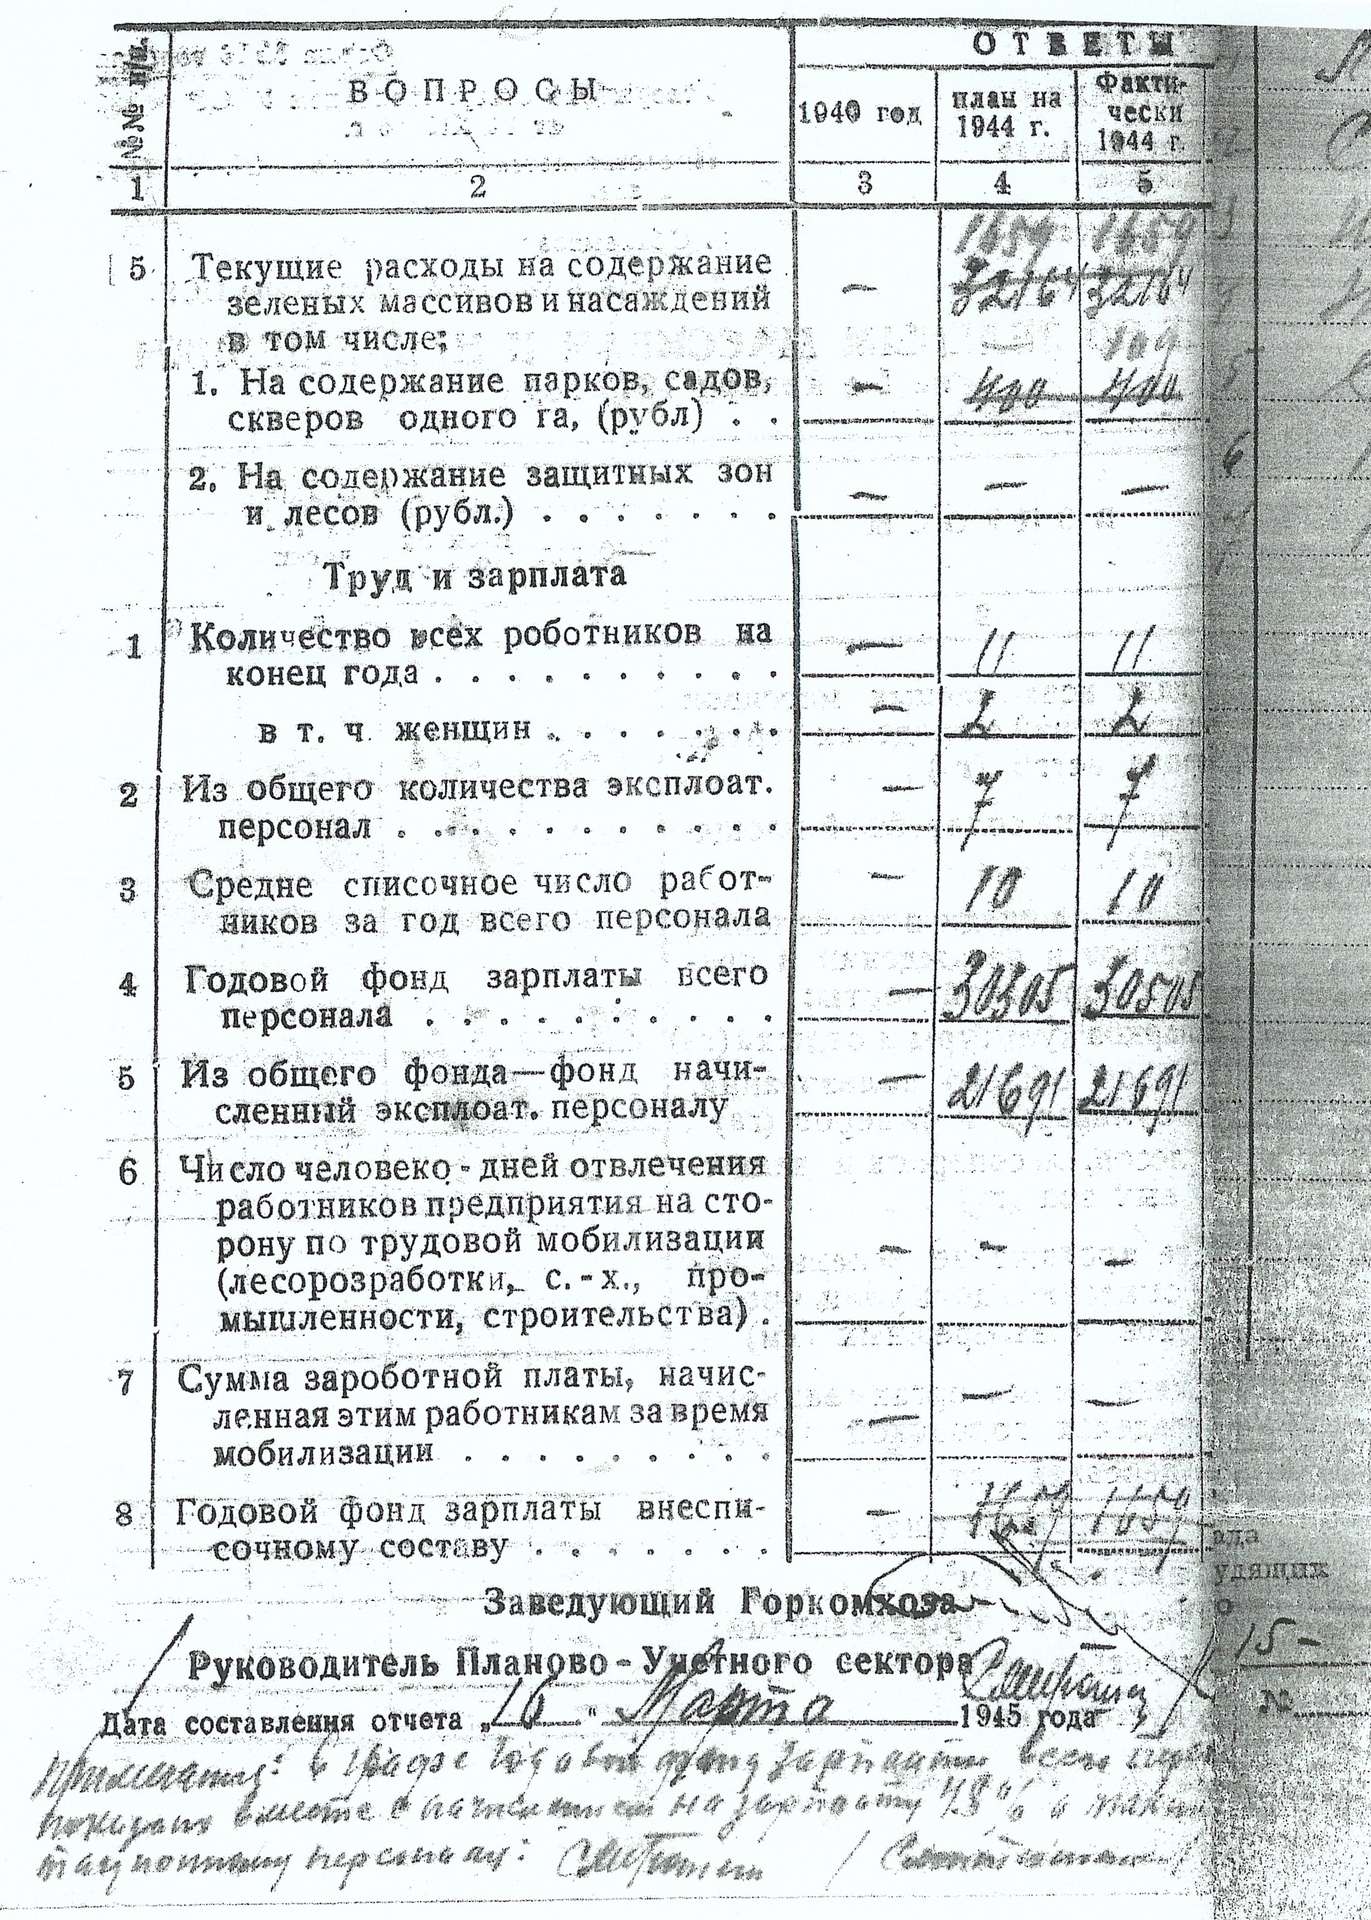 №№ п/п.
ВОПРОСЫ
ОТВЕТЫ
1940 год
план на 1944 г.
Факти-
чески
1944 г.
1 2 3 4 5
1659 1659
5 Текущие расходы на содержание
зеленых массивов и насаждений — 32164 32164
в том числе; — 109
1. На содержание парков, садов, — 400 400
скверов одного га, (рубл) . .
2. На содержание защитных зон — — —
и лесов (рубл.) . . . . . . .
Труд и зарплата
1 Количество всех роботников на — 11 11
конец года . . . . . . . . . .
в т. ч. женщин . . . . . . . — 2 2
2 Из общего количества эксплоат. — 7 7
персонал . . . . . . . . . . .
3 Средне списочное число работ- — 10 10
ников за год всего персонала
4 Годовой фонд зарплаты всего — 30305 30505
персонала . . . . . . . . . .
5 Из общего фонда—фонд начи- — 21691 21691
сленный эксплоат. персоналу
6 Число человеко-дней отвлечения
работников предприятия на сто-
рону по трудовой мобилизации — — —
(лесорозработки, с.-х., про-
мышленности, строительства) .
7 Сумма зароботной платы, начис-
ленная этим работникам за время — — —
мобилизации . . . . . . . . .
8 Годовой фонд зарплаты внеспи- — 1659 1659
сочному составу . . . . . . .
Заведующий Горкомхоза
Руководитель Планово-Учетного сектора
Дата составления отчета „16" Марта 1945 года
Примечания: в графе годовой фонд зарплаты всего
вместе с начислением на зарплату
персоналу:
6
ада
удящих
о
15 -
№